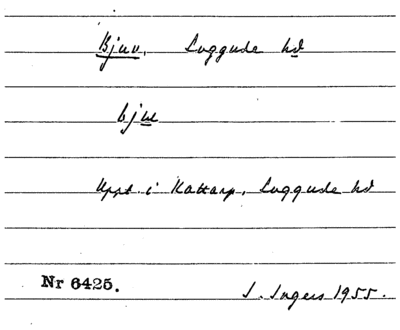 Bjuv. Luggude hd
bjuv
Uppt. i Kattarp, Luggude hd
Nr 6425.
I. Ingers 1955.